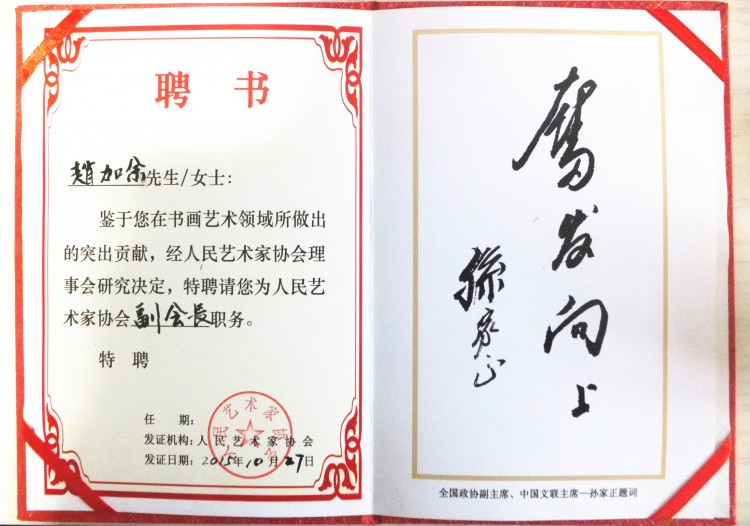 聘 书
趙加余先生/女士:
鉴于您在书画艺术领域所做出
的突出贡献，经人民艺术家协会理
事会研究决定，特聘请您为人民艺
术家协会副会長职务。
特 聘
任 期:
发证机构:人民艺术家协会
发证日期:2015年10月27日
人民艺术家协会
奮发向上
孫家正
全国政协副主席、中国文联主席—孙家正题词